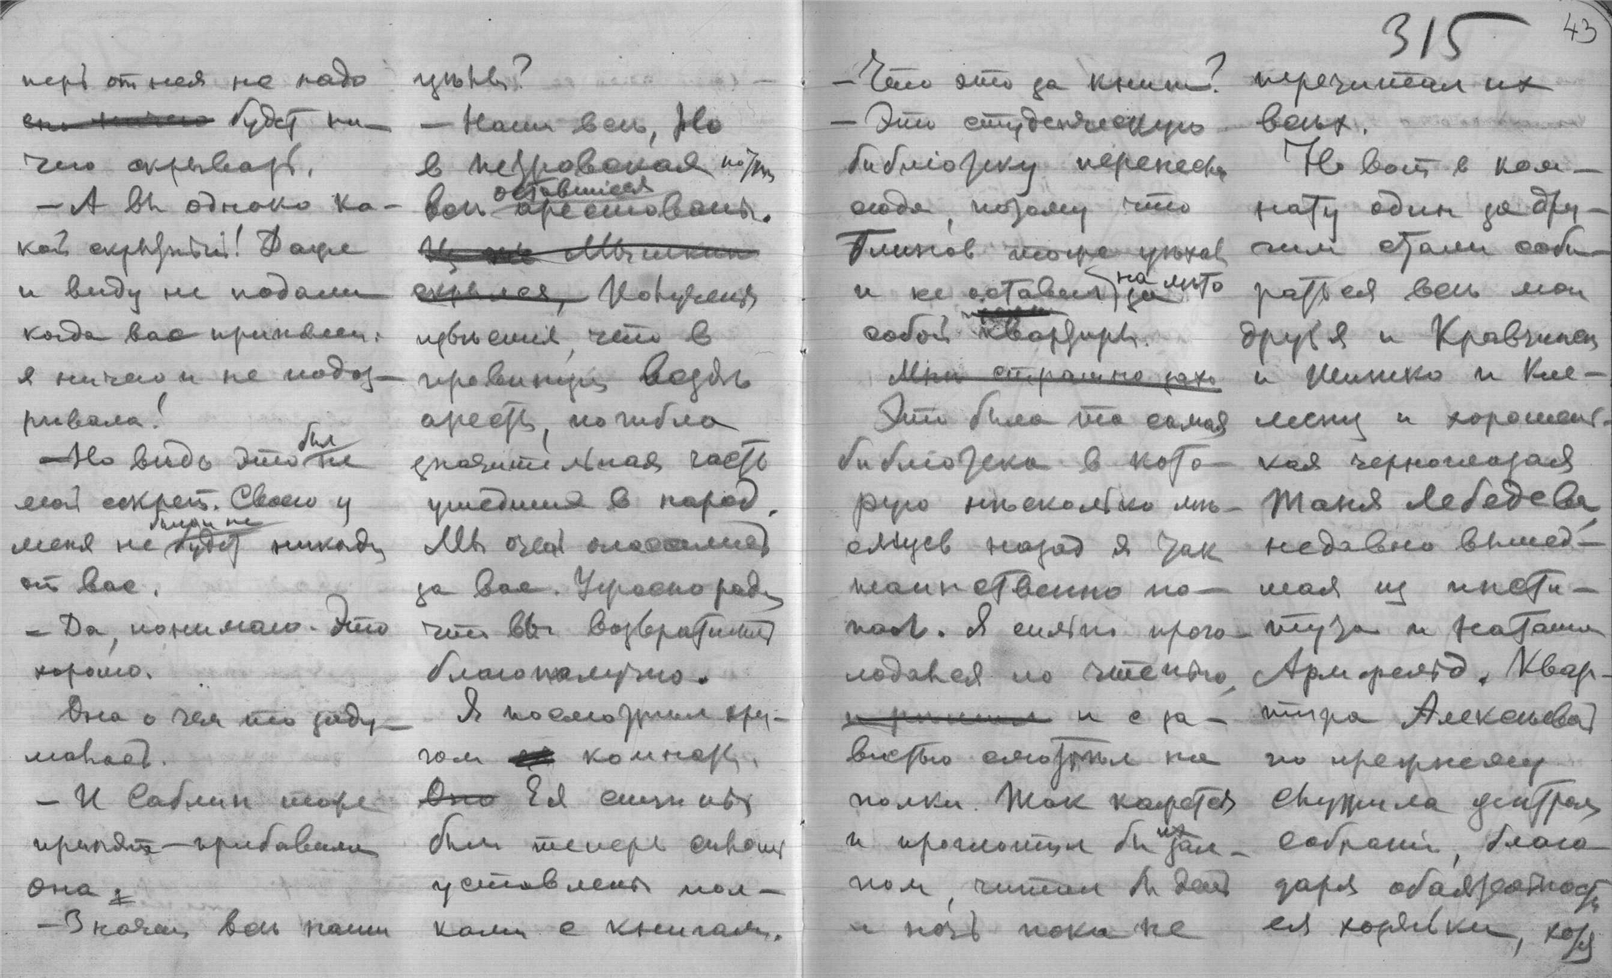 перь от нея не надо
будет ни-
чего скрывать.
— А вы однако ка-
кой скрытный! Даже
и виду не подали
когда вас приняли:
я ничего и не подоз-
ревала!
— Но ведь это был не
мой секрет. Своего у
меня не было и не будет никогда
от вас.
— Да, понимаю. Это
хорошо.
Она о чем то заду-
малась.
— И Саблин тоже
принят — прибавила
она.
— Значит все наши
целы?
— Наши все, Но
в петровская почти
все оставшиеся арестованы.
Из них Мышкин
скрылся, Получены
известия, что в
провинции везде
аресты, погибла
значительная часть
ушедших в народ.
Мы очень опасались
за вас. Я так рада
что вы возвратились
благополучно.
Я посмотрел кру-
гом комнаты.
Ея стены
были теперь сплошь
уставлены пол-
ками с книгами.
315
43
— Что это за книги?
— Это студенческую
библіотеку перенесли
сюда, потому что
Блинов тоже уехал
и не оставил на лето за
собой квартиры.
Мне страшно захо
Это была та самая
библіотека в кото-
рую несколько ме-
сяцев назад я так
таинственно по-
пал. Я сильно прого-
лодался по чтению,
и с за-
вистью смотрел на
полки. Так кажется
и проглотил бы их зал-
пом, читал бы день
и ночь пока не
перечитал их
всех.
Но вот в ком-
нату один за дру-
гим стали соби-
раться все мои
друзья и Кравчинский
и Шишко и Кле-
менц и хорошень-
кая черноглазая
Таня Лебедева,
недавно вышед-
шая из инсти-
тута и Наташа
Армфельд. Квар-
тира Алексеевой
по прежнему
служила центром
собраний, благо-
даря обаятельности
ея хозяйки, хотя